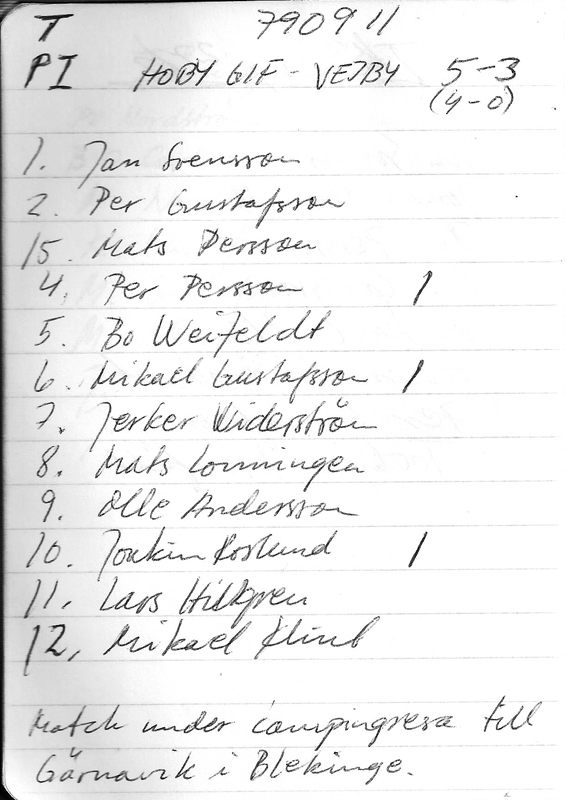 T 790911
PI HOBY GIF - VEJBY 5-3
(4-0)
1. Jan Svensson
2. Per Gustafsson
15. Mats Persson
4. Per Persson 1
5. Bo Weifeldt
6. Mikael Gustafsson 1
7. Jerker Widerström
8. Mats Lonningen
9. Olle Andersson
10. Joakim Roslund 1
11. Lars Hillgren
12, Mikael
Match under campingresa till
Gärnavik i Blekinge.